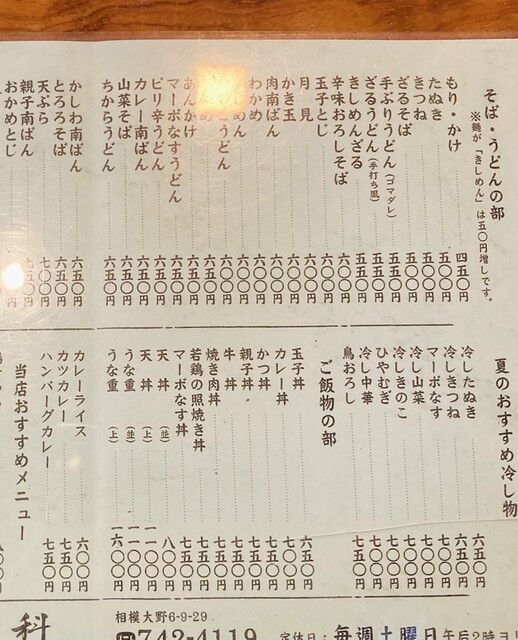 そば・うどんの部
※麺が「きしめん」は五〇円増しです。
もり・かけ 四五〇円
たぬき 五〇〇円
きつね 五〇〇円
ざるそば 五五〇円
手ぶりうどん(ゴマダレ) 五五〇円
ざるうどん(手打ち風) 五五〇円
きしめんざる 五五〇円
辛味おろしそば 六〇〇円
玉子とじ 六〇〇円
月見 六〇〇円
かき玉 六〇〇円
肉南ばん 六五〇円
わかめ 六〇〇円
めん 六〇〇円
うどん 六五〇円
め 六五〇円
あんかけ 六五〇円
マーボなすうどん 六五〇円
ピリ辛うどん 六五〇円
カレー南ばん 六五〇円
山菜そば 六五〇円
ちからうどん 六五〇円
かしわ南ばん 六五〇円
とろろそば 六五〇円
天ぷら 七〇〇円
親子南ばん 七五〇円
おかめとじ 円
夏のおすすめ冷し物
冷したぬき 六五〇円
冷しきつね 六五〇円
マーボなす 七〇〇円
冷し山菜 七〇〇円
冷しきのこ 七〇〇円
ひやむぎ 七〇〇円
冷し中華 七〇〇円
鳥おろし 七五〇円
ご飯物の部
玉子丼 六五〇円
カレー丼 七〇〇円
かつ丼 七五〇円
親子丼 七五〇円
牛丼 七五〇円
焼き肉丼 七五〇円
若鶏の照焼き丼 七五〇円
マーボなす丼 七五〇円
天丼(並) 八〇〇円
天丼(上) 一一〇〇円
うな重(並) 一一〇〇円
うな重(上) 一六〇〇円
カレーライス 六〇〇円
カツカレー 七五〇円
ハンバーグカレー 七五〇円
当店おすすめメニュー
科
相模大野6-9-29
742-4119
定休日:毎週土曜日午后2時ヨ